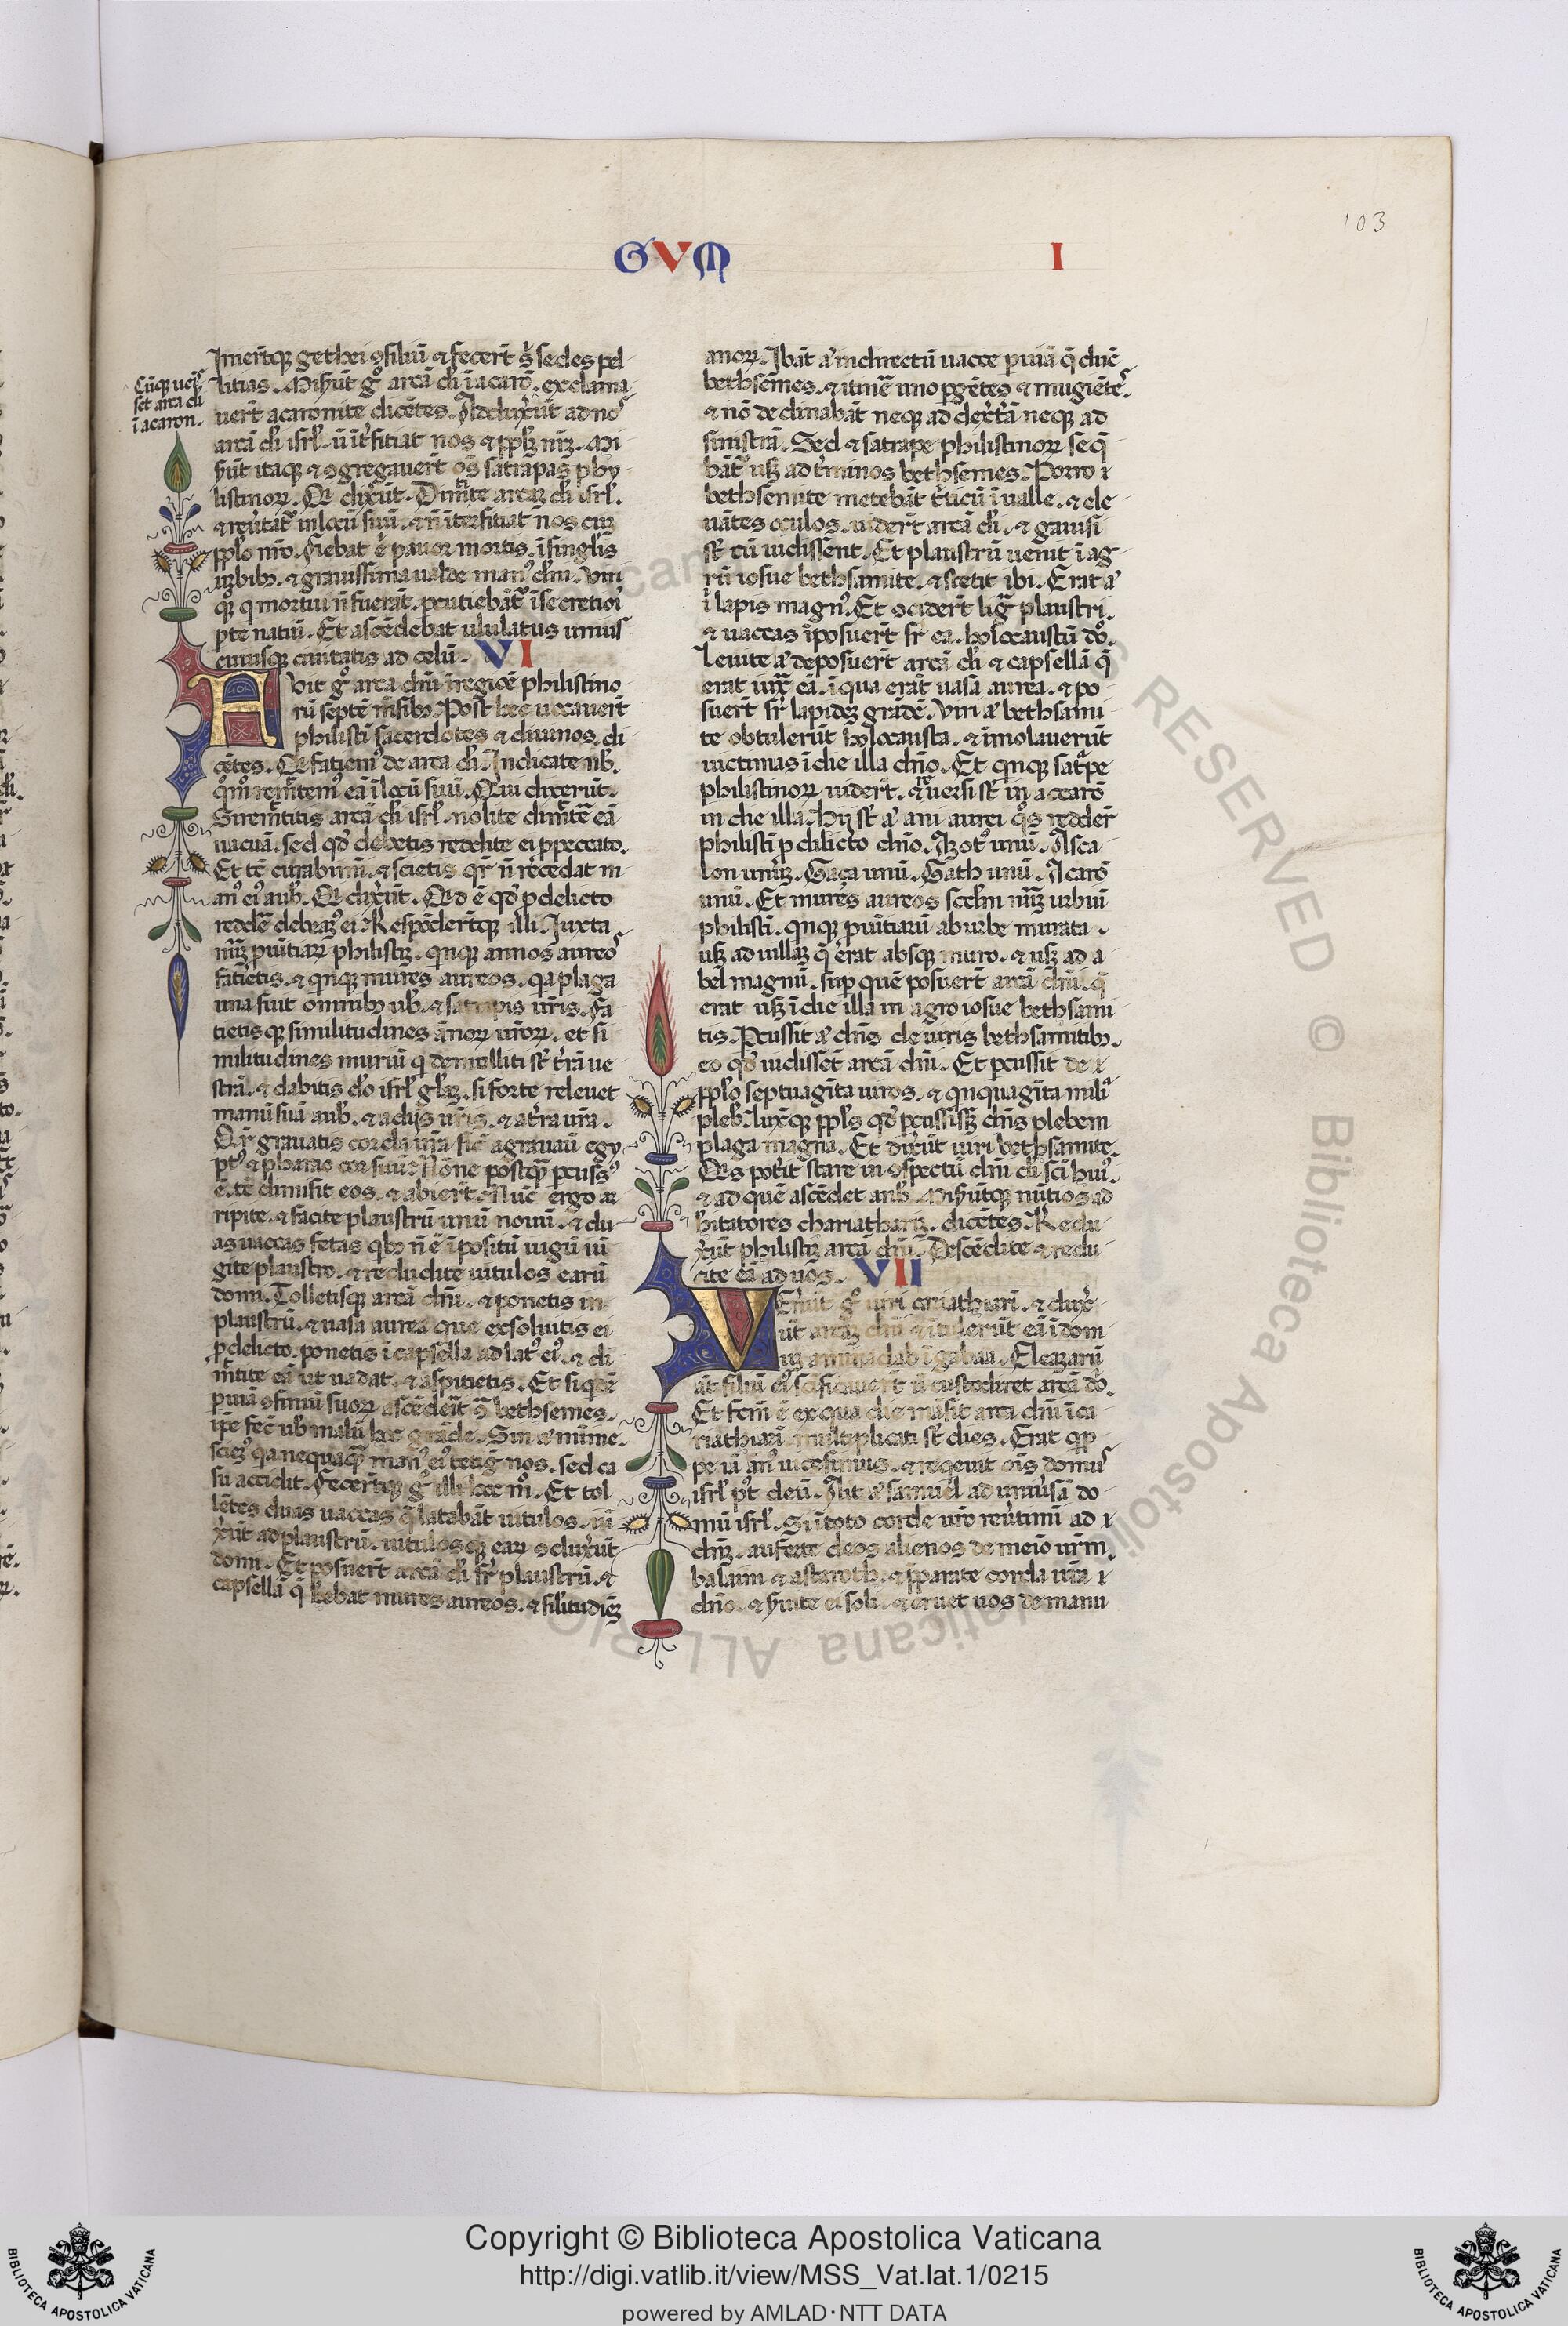 103
GVM I
Cūq; uēıſ
ſet arca dī
ī acaron.
Imerūtq; gethei ꝯſiliū ⁊ fecerūt ſ̄ ſedes pel-
litias. Miſerūt gͦ arcā dī ī acarō. exclama
verūt acaronite dicētes. Adduxerūt ad noſ
arcā dī iſrl. ū īt̄fitiat nos ⁊ ppl'ꝫ nr̄ꝫ. Mi-
ſerūt itaq; ⁊ ꝯgregaverūt oēs satrapas phy-
listinoꝝ. Q̄ dixerūt. Dimitte arcaꝫ dī iſrl.
⁊ reūtat̄ in locū ſuū. ⁊ n̄ īterfitiat nos cuꝫ
pplo nr̄o. Fiebat .n. pavor mortis. ī ſinglis
urbibꝫ. ⁊ graviſſima ualde manꝰ dn̄i. Viri
q̊ꝫ q̄ mortui n̄ fuerāt. pcutiebāt̄ ī ſecretiori
pte natiū. Et aſcēdebat ululatus uniuſ
cuiusq; civitatis ad celū. VI
AVit gͦ arca dn̄i ī regiōe philistino-
rū ſeptē mēſibꝫ. Post hec vocaverūt
philisti ſacerdotes ⁊ divinos. di
cētes. Q̄ fatiemꝰ de arca dī. Indicate nb̄.
q̊mͦ remittemꝰ eā ī locū ſuū. Qui dixerūt.
Si remittitis arcā dī iſrl. nolite dimittē eā
vacuā. ſed qd̄ debetis reddite ei p peccato.
Et tē curabimī. ⁊ ſcietis qr̄ n̄ recedat m
anꝰ eiꝰ a ub̄. Q̄ dixerūt. Qd̄ ē qd̄ p delicto
reddē debeaꝫ ei. Reſpōderūtq; illi. Iuxta
nūꝫ puītiaꝝ philistiꝫ. qnq; annos aureoſ
fatietis. ⁊ qnq; mures aureos. qa plaga
una fuit omnibꝫ ub̄. ⁊ ſatrapis ur̄is. Fa
tietisq; ſimilitudines anoꝝ ur̄oꝝ. et ſi
militudines muriū q̄ demolliti ſt̄ t̄rā ve
strā. ⁊ dabitis dō iſrl gl'aꝫ. ſi forte relevet
manū ſuā a ub̄. ⁊ a dijs ur̄is. ⁊ a t̄ra ur̄a.
Qr̄ gravatis corda ur̄a ſic̄ agravavī egy
ptꝰ ⁊ pharao cor ſuū. Nōne postq̄ pcuſſꝰ
ē. tē dimiſit eos. ⁊ abierūt. Nūc ergo ar
ripite. ⁊ facite plaustrū unū novū. ⁊ du-
as vaccas fetas qbꝫ n̄ ē īpoſitū iugū iū
gite plaustro. ⁊ recludite vitulos earū
domi. Tolletisq; arcā dn̄i. ⁊ ponetis in
plaustrū. ⁊ vaſa aurea que exſoluitis ei
p delicto. ponetis ī capſella ad latꝰ eiꝰ. ⁊ di
mittite eā ut vadat. ⁊ aſpitietis. Et ſi qdē
p viā ꝯfiniū ſuoꝝ aſcēderit ꝯ̄ bethſemes.
ip̄e fec̄ ub̄ malū hoc grāde. Sin aꝰ mīme.
ſciemꝰ qa nequaq̄ manꝰ eiꝰ tetiḡ nos. ſed ca
ſu accidit. Fecerūtq; gͦ illi hoc mͦ. Et tol
lētes duas vaccas q̄ lactabāt vitulos. iū
xerūt ad plaustrū. vitulosq; eaꝝ ꝯcluxerūt
domi. Et poſuerūt arcā dī ſr̄ plaustrū. ⁊
capſellā q̄ habebat mures aureos. ⁊ ſilitudīeꝫ
anoꝝ. Ibāt aꝰ in directū vacce p viā q̄ duc̄
bethſemes. ⁊ itinē uno pgētes ⁊ mugiēteſ
⁊ nō declinabāt neq; ad dextrā neq; ad
ſinistrā. Sed ⁊ ſatrape philistinoꝝ ſeq̄
bāt̄ uſꝫ ad t̄minos bethſemes. Porro
bethſemite metebāt t̄ticū ī valle. ⁊ ele-
vātes oculos. viderūt arcā dī. ⁊ gaviſi
ſt̄ cū vidiſſent. Et plaustrū venit ī ag-
rū ioſue bethſamite. ⁊ stetit ibi. Erat aꝰ
ī lapis magnꝰ. Et ꝯciderūt liḡ plaustri.
⁊ vaccas īpoſuerūt ſr̄ ea. holocaustū dō.
Levite aꝰ depoſuerūt arcā dī ⁊ capſellā q̄
erat iux̄ eā. ī qua erāt vaſa aurea. ⁊ po-
ſuerūt ſr̄ lapideꝫ grādē. Viri aꝰ bethſami-
te obtulerūt holocausta. ⁊ īmolaverūt
victimas ī die illa dn̄o. Et qnq; ſat̄pe
philistinoꝝ viderūt. ⁊ reverſi ſt̄ in accarō
in die illa. Hij ſt̄ aꝰ ani aurei q̊s reddēr
philisti p dilicto dn̄o. Azotꝰ unū. Aſca-
lon unūꝫ. Gaça unū. Gath unū. Acarō
unū. Et mures aureos ſcdm nūꝫ urbiū
philisti. qnq; puītiarū ab urbe murata
uſꝫ ad villaꝫ q̄ erat absq; muro. ⁊ uſꝫ ad a
bel magnū. ſup quē poſuerūt arcā dn̄i. q̄
erat uſꝫ ī die illa in agro ioſue bethſami
tis. Pcuſſit aꝰ dn̄s de viris bethſamitibꝫ.
eo qd̄ vidiſſēt arcā dn̄i. Et pcuſſit de
pplo ſeptuagīta viros. ⁊ qnquagīta miliꝰ
pleb̄. Luxitq; ppl's qd̄ pcuſſiſꝫ dn̄s plebem
plaga magna. Et dixerūt viri bethſamite.
Qis poterit stare in ꝯſpectū dn̄i dī ſcī huiꝰ.
⁊ ad quē aſcēdet a nob̄. Miſerūtq; nūtios ad
hītatores chariathariꝫ. dicētes. Redu-
xerūt philistiꝫ arcā dn̄i. Deſcēdite ⁊ redu-
cite eā ad vos. VII
VEnerūt gͦ viri cariathiarī. ⁊ duxe-
rūt arcāꝫ dn̄i ⁊ ītulerūt eā ī dom-
uꝫ aminadab ī gabaa. Eleazarū
aūt filiū eiꝰ ſcīficaverūt ū custodiret arcā dō.
Et fctm̄ ē ex qua die māſit arca dn̄i ī ca-
riathiarī. multiplicati ſt̄ dies. Erat qp-
pe iā anꝰ viceſimus. ⁊ reqevit oīs domuſ
iſrl pꝰt deū. Ait aꝰ ſamuel ad univerſā do-
mū iſrl. Si ī toto corde ur̄o revertimī ad
dn̄ꝫ. auferte deos alienos de meīo ur̄m.
balaim ⁊ astaroth. ⁊ pparate corda ur̄a
dn̄o. ⁊ ſervite ei ſoli. ⁊ eruet vos de manu
Copyright © Biblioteca Apostolica Vaticana
http://digi.vatlib.it/view/MSS_Vat.lat.1/0215
powered by AMLAD·NTT DATA
BIBLIOTECA APOSTOLICA VATICANA
BIBLIOTECA APOSTOLICA VATICANA